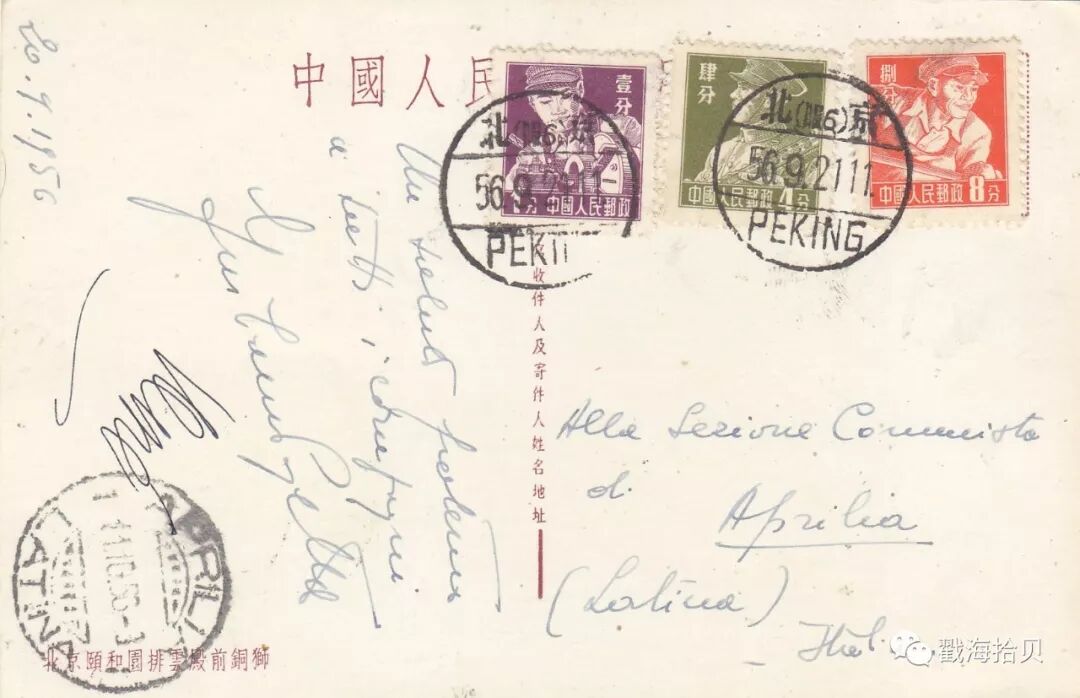 20.9.1956
中國人民
壹分
中國人民郵政
肆分
中國人民郵政4分
捌分
中國人民郵政8分
北京
56.9.2111
PEKIN
北京
56.9.2111.
PEKING
Un saluto fraterno
a tutti i compagni
收件人及寄件人姓名地址
Alla Sezione Comunista
di
Aprilia
(Latina)
APRILIA
LATINA
北京頤和園排雲殿前銅獅
戳海拾贝